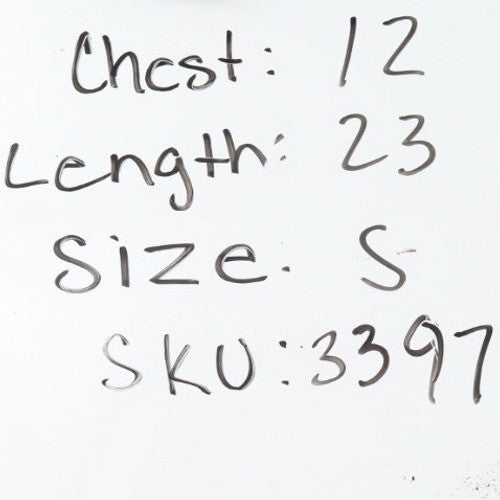 Chest: 12
Length: 23
Size: S
SKU: 3397